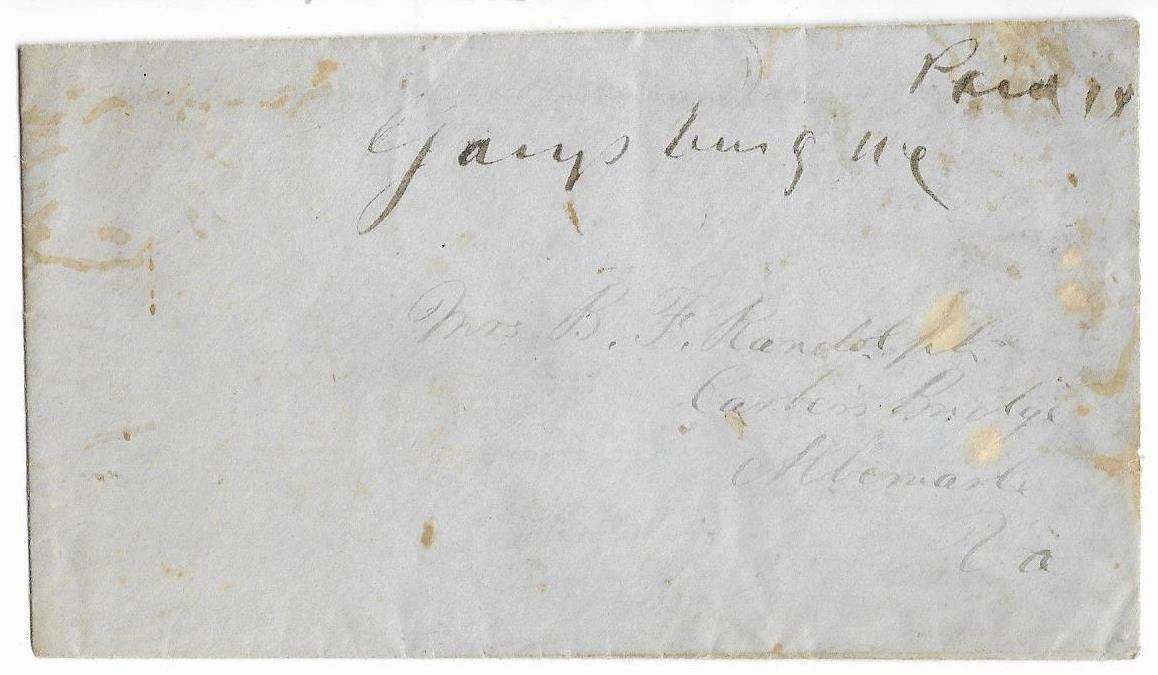 Paid
Garysburg NC
Mrs B. F. Randolph
Carter's Bridge
Albemarle
Va